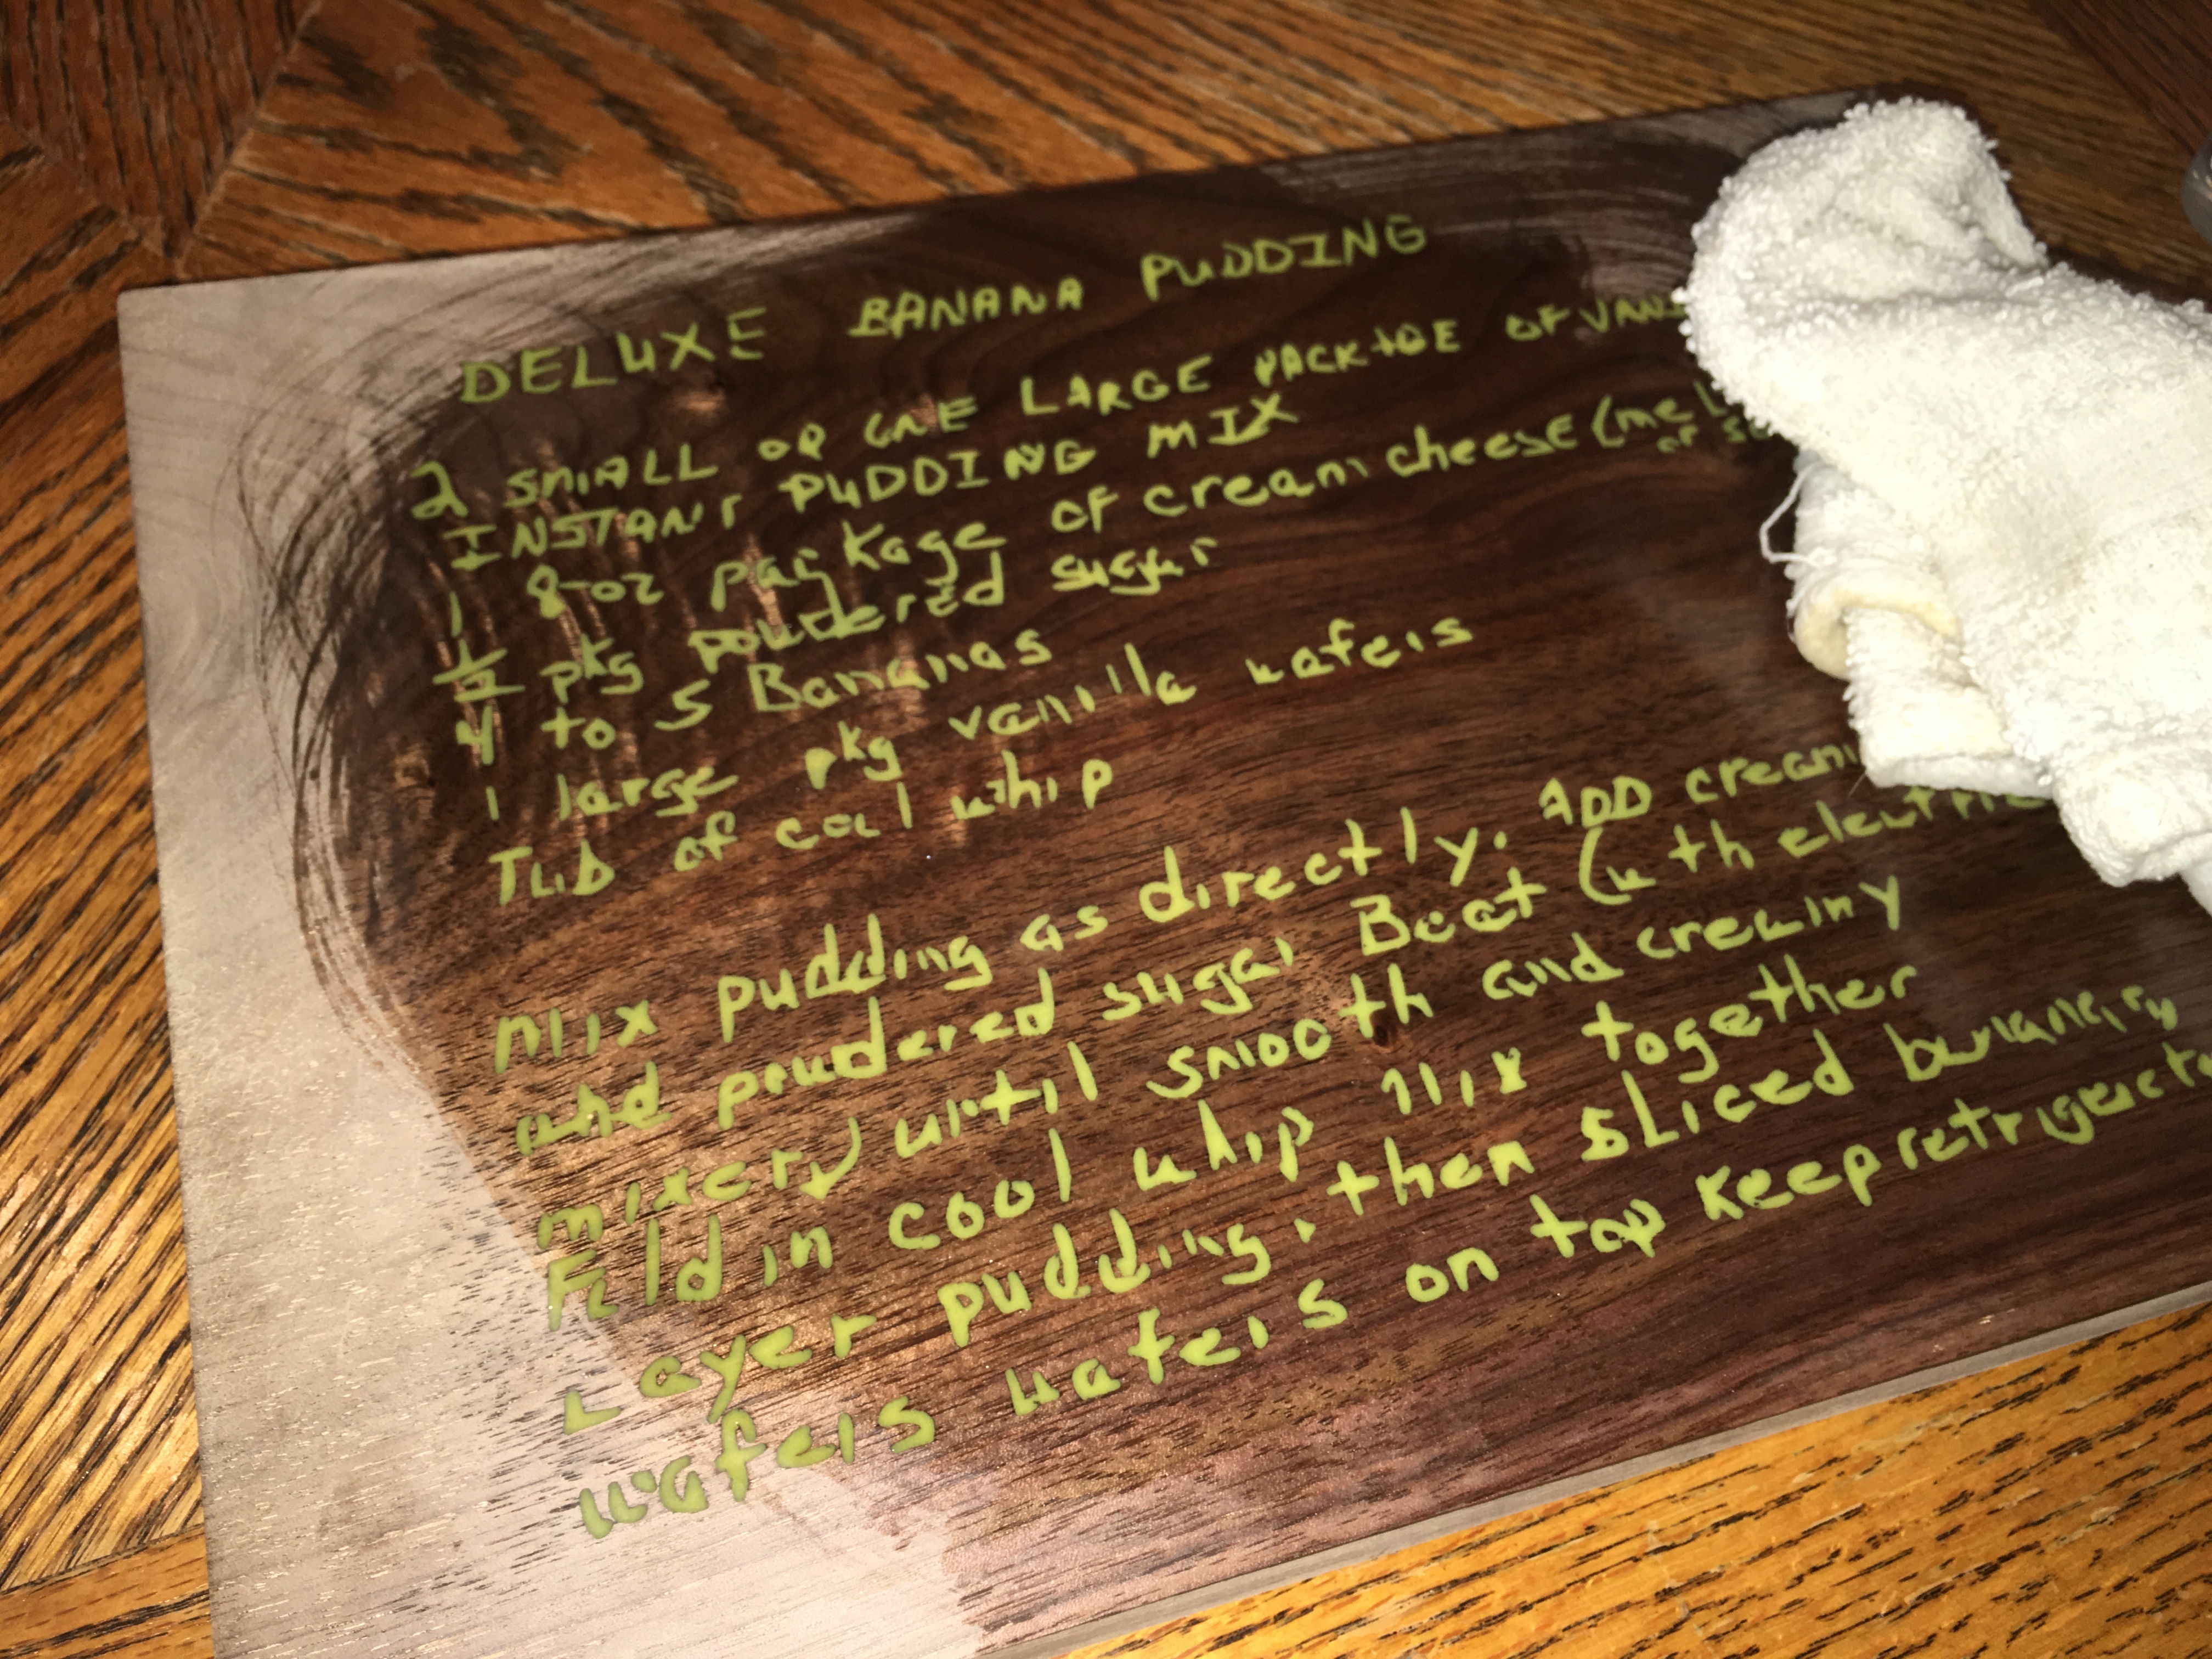 DELUXE BANANA PUDDING
2 SMALL OR ONE LARGE PACKAGE OF
INSTANT PUDDING MIX
1 8-oz package of cream cheese
1/2 pkg powdered sugar
4 to 5 Bananas
1 large pkg vanilla wafers
TUB of cool whip
Mix pudding as directly. ADD cream
and powdered sugar Beat (with electric
mixer) until smooth and creamy
Fold in cool whip Mix together
Layer pudding, then sliced
wafers wafers on top Keep